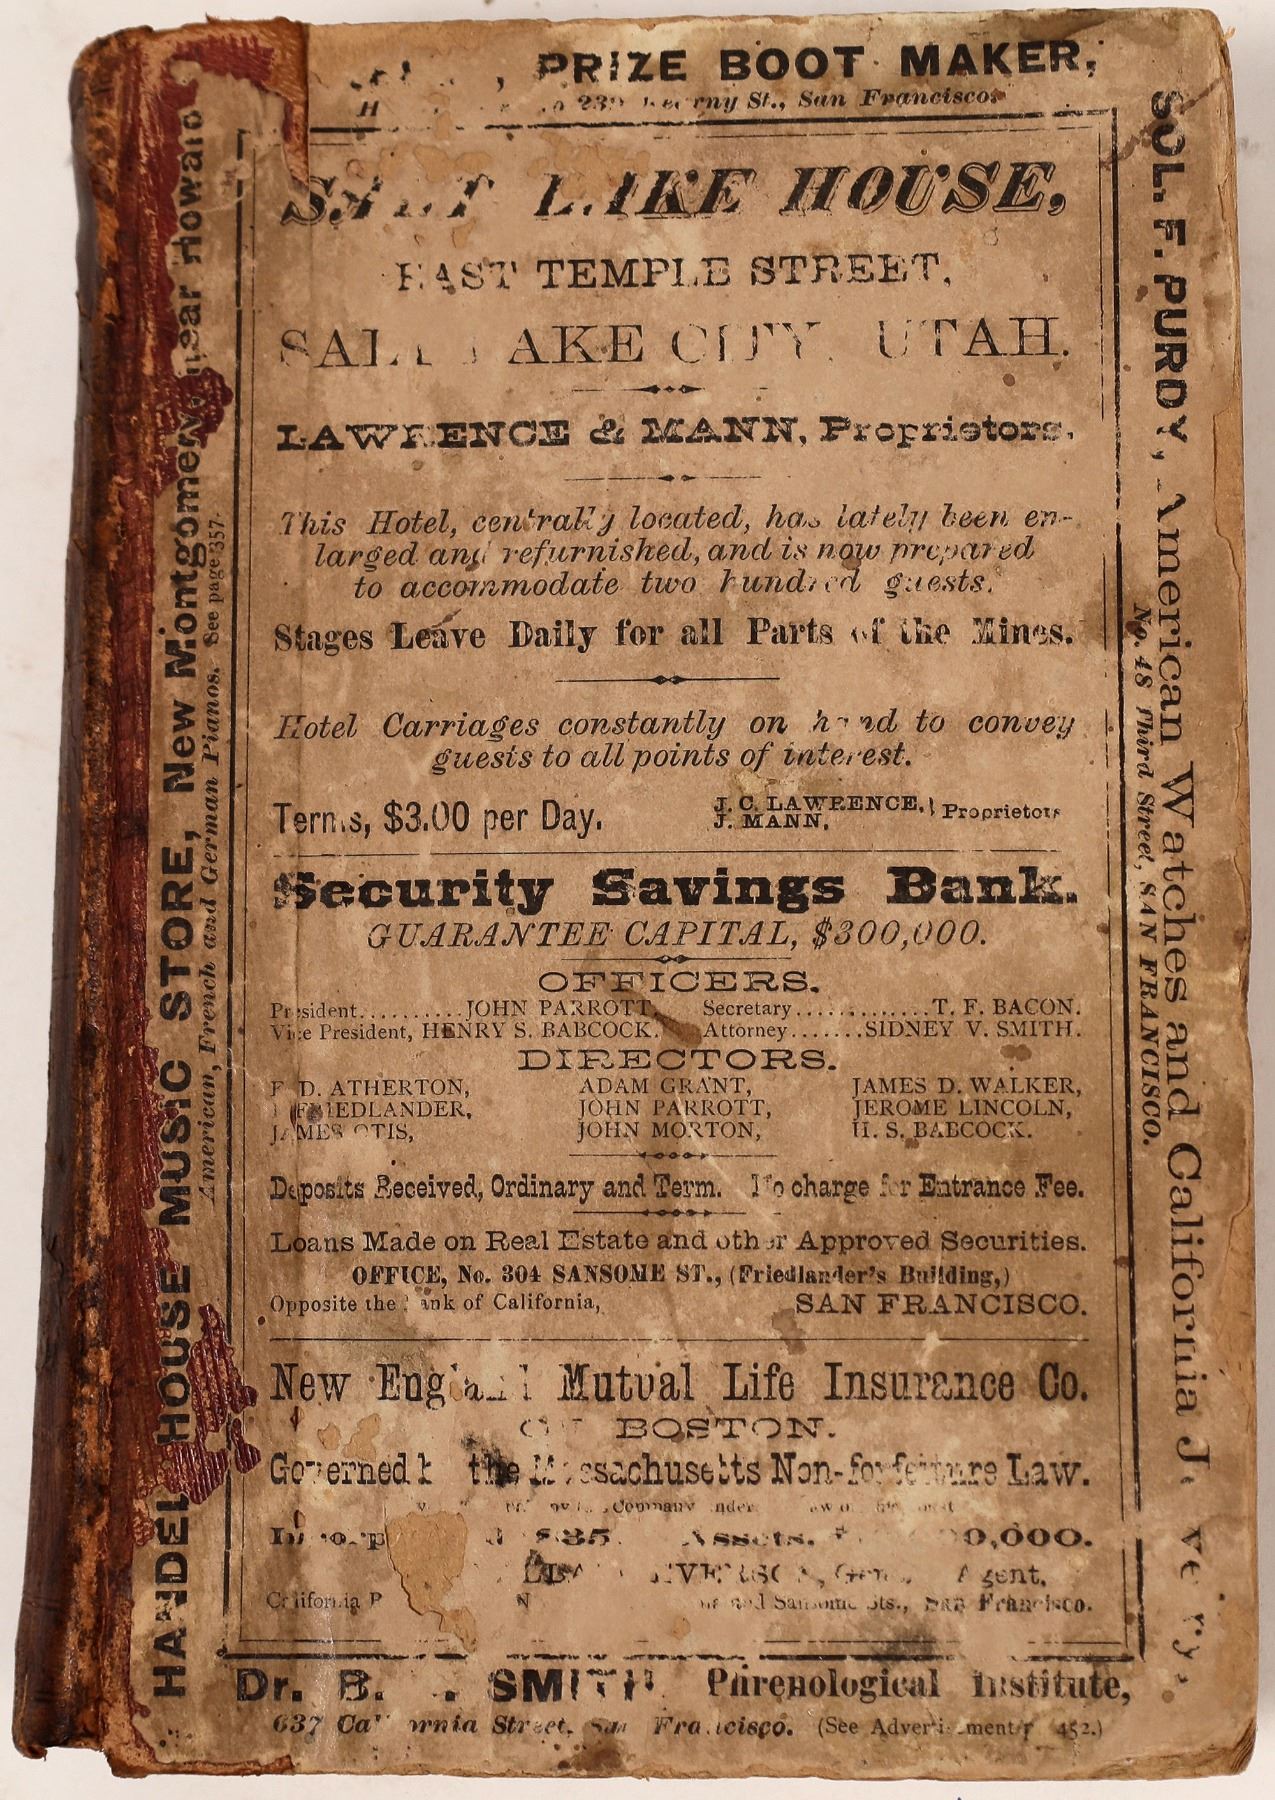 PRIZE BOOT MAKER,
St., San Francisco.
LAKE HOUSE,
EAST TEMPLE STREET,
UTAH.
LAWRENCE & MANN, Proprietors.
This Hotel, centrally located, has lately been en-
larged and refurnished, and is now prepared
to accommodate two hundred guests.
Stages Leave Daily for all Parts of the Mines.
Hotel Carriages constantly on hand to convey
guests to all points of interest.
Terms, $3.00 per Day.
J. C. LAWRENCE,
J. MANN,
} Proprietors
Security Savings Bank.
GUARANTEE CAPITAL, $300,000.
OFFICERS.
President..........JOHN PARROTT, Secretary.............T. F. BACON.
Vice President, HENRY S. BABCOCK. Attorney.......SIDNEY V. SMITH.
DIRECTORS.
D. ATHERTON, ADAM GRANT, JAMES D. WALKER,
FRIEDLANDER, JOHN PARROTT, JEROME LINCOLN,
JAMES OTIS, JOHN MORTON, H. S. BABCOCK.
Deposits Received, Ordinary and Term. No charge for Entrance Fee.
Loans Made on Real Estate and other Approved Securities.
OFFICE, No. 304 SANSOME ST., (Friedlander's Building,)
Opposite the Bank of California, SAN FRANCISCO.
New England Mutual Life Insurance Co.
BOSTON.
Governed the Massachusetts Non-forfeiture Law.
Company
Assets,
Agent,
California Sansome Sts., San Francisco.
Dr. B. SMITH Phrenological Institute,
637 California Street, San Francisco. (See Advertisement 452.)
HANDEL HOUSE MUSIC STORE, New Montgomery near Howard
American, French and German Pianos. See page 357.
SOL. F. PURDY, American Watches and California Jewelry,
No. 48 Third Street, SAN FRANCISCO.